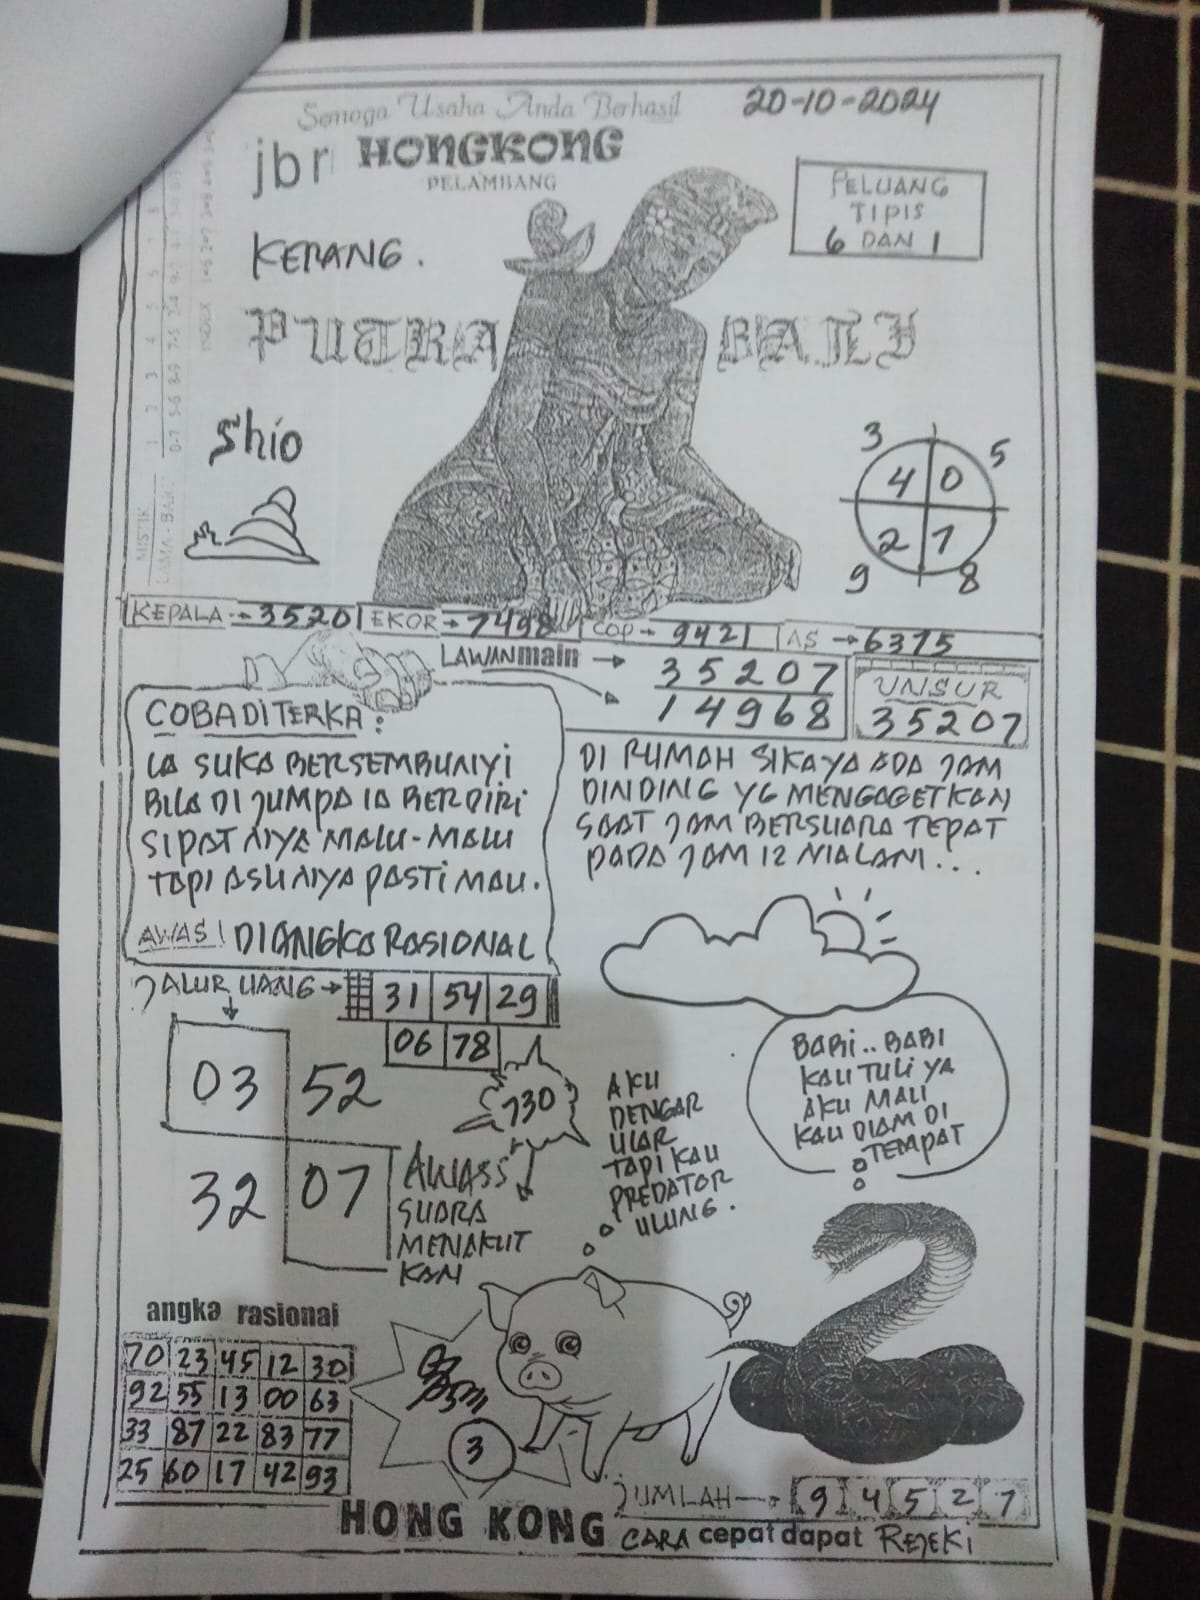 Semoga Usaha Anda Berhasil
20-10-2024
jbr HONGKONG
PELAMBANG
KERANG.
PELUANG
TIPIS
6 DAN 1
PUTRA BALI
Shio
3 5
4 0
2 7
9 8
MISTIK
LAMA - BARU
INDEX
KEPALA 35201 EKOR 7498 COP 9421 AS 6375
LAWAN main 35207
14968
UNSUR
35207
COBA DITERKA :
IA SUKA BERSEMBUNYI
BILA DI JUMPA IA BERDIRI
SIPATNYA MALU-MALU
TAPI ASLINYA PASTI MAU.
AWAS! DIANGKA RASIONAL
DI RUMAH SIKAYA ADA JAM
DINDING YG MENGAGETKAN
SAAT JAM BERSUARA TEPAT
PADA JAM 12 MALAM...
JALUR UANG 31 54 29
06 78
03 52
32 07
730
AWASS
SUARA
MENAKUT
KAN
AKU
DENGAR
ULAR
TAPI KAU
PREDATOR
ULUNG.
BABI.. BABI
KAU TULI YA
AKU MAU
KAU DIAM DI
TEMPAT
angka rasional
70 23 45 12 30
92 55 13 00 63
33 87 22 83 77
25 60 17 42 93
3
JUMLAH 9 4 5 2 7
HONG KONG CARA cepat dapat REJEKI